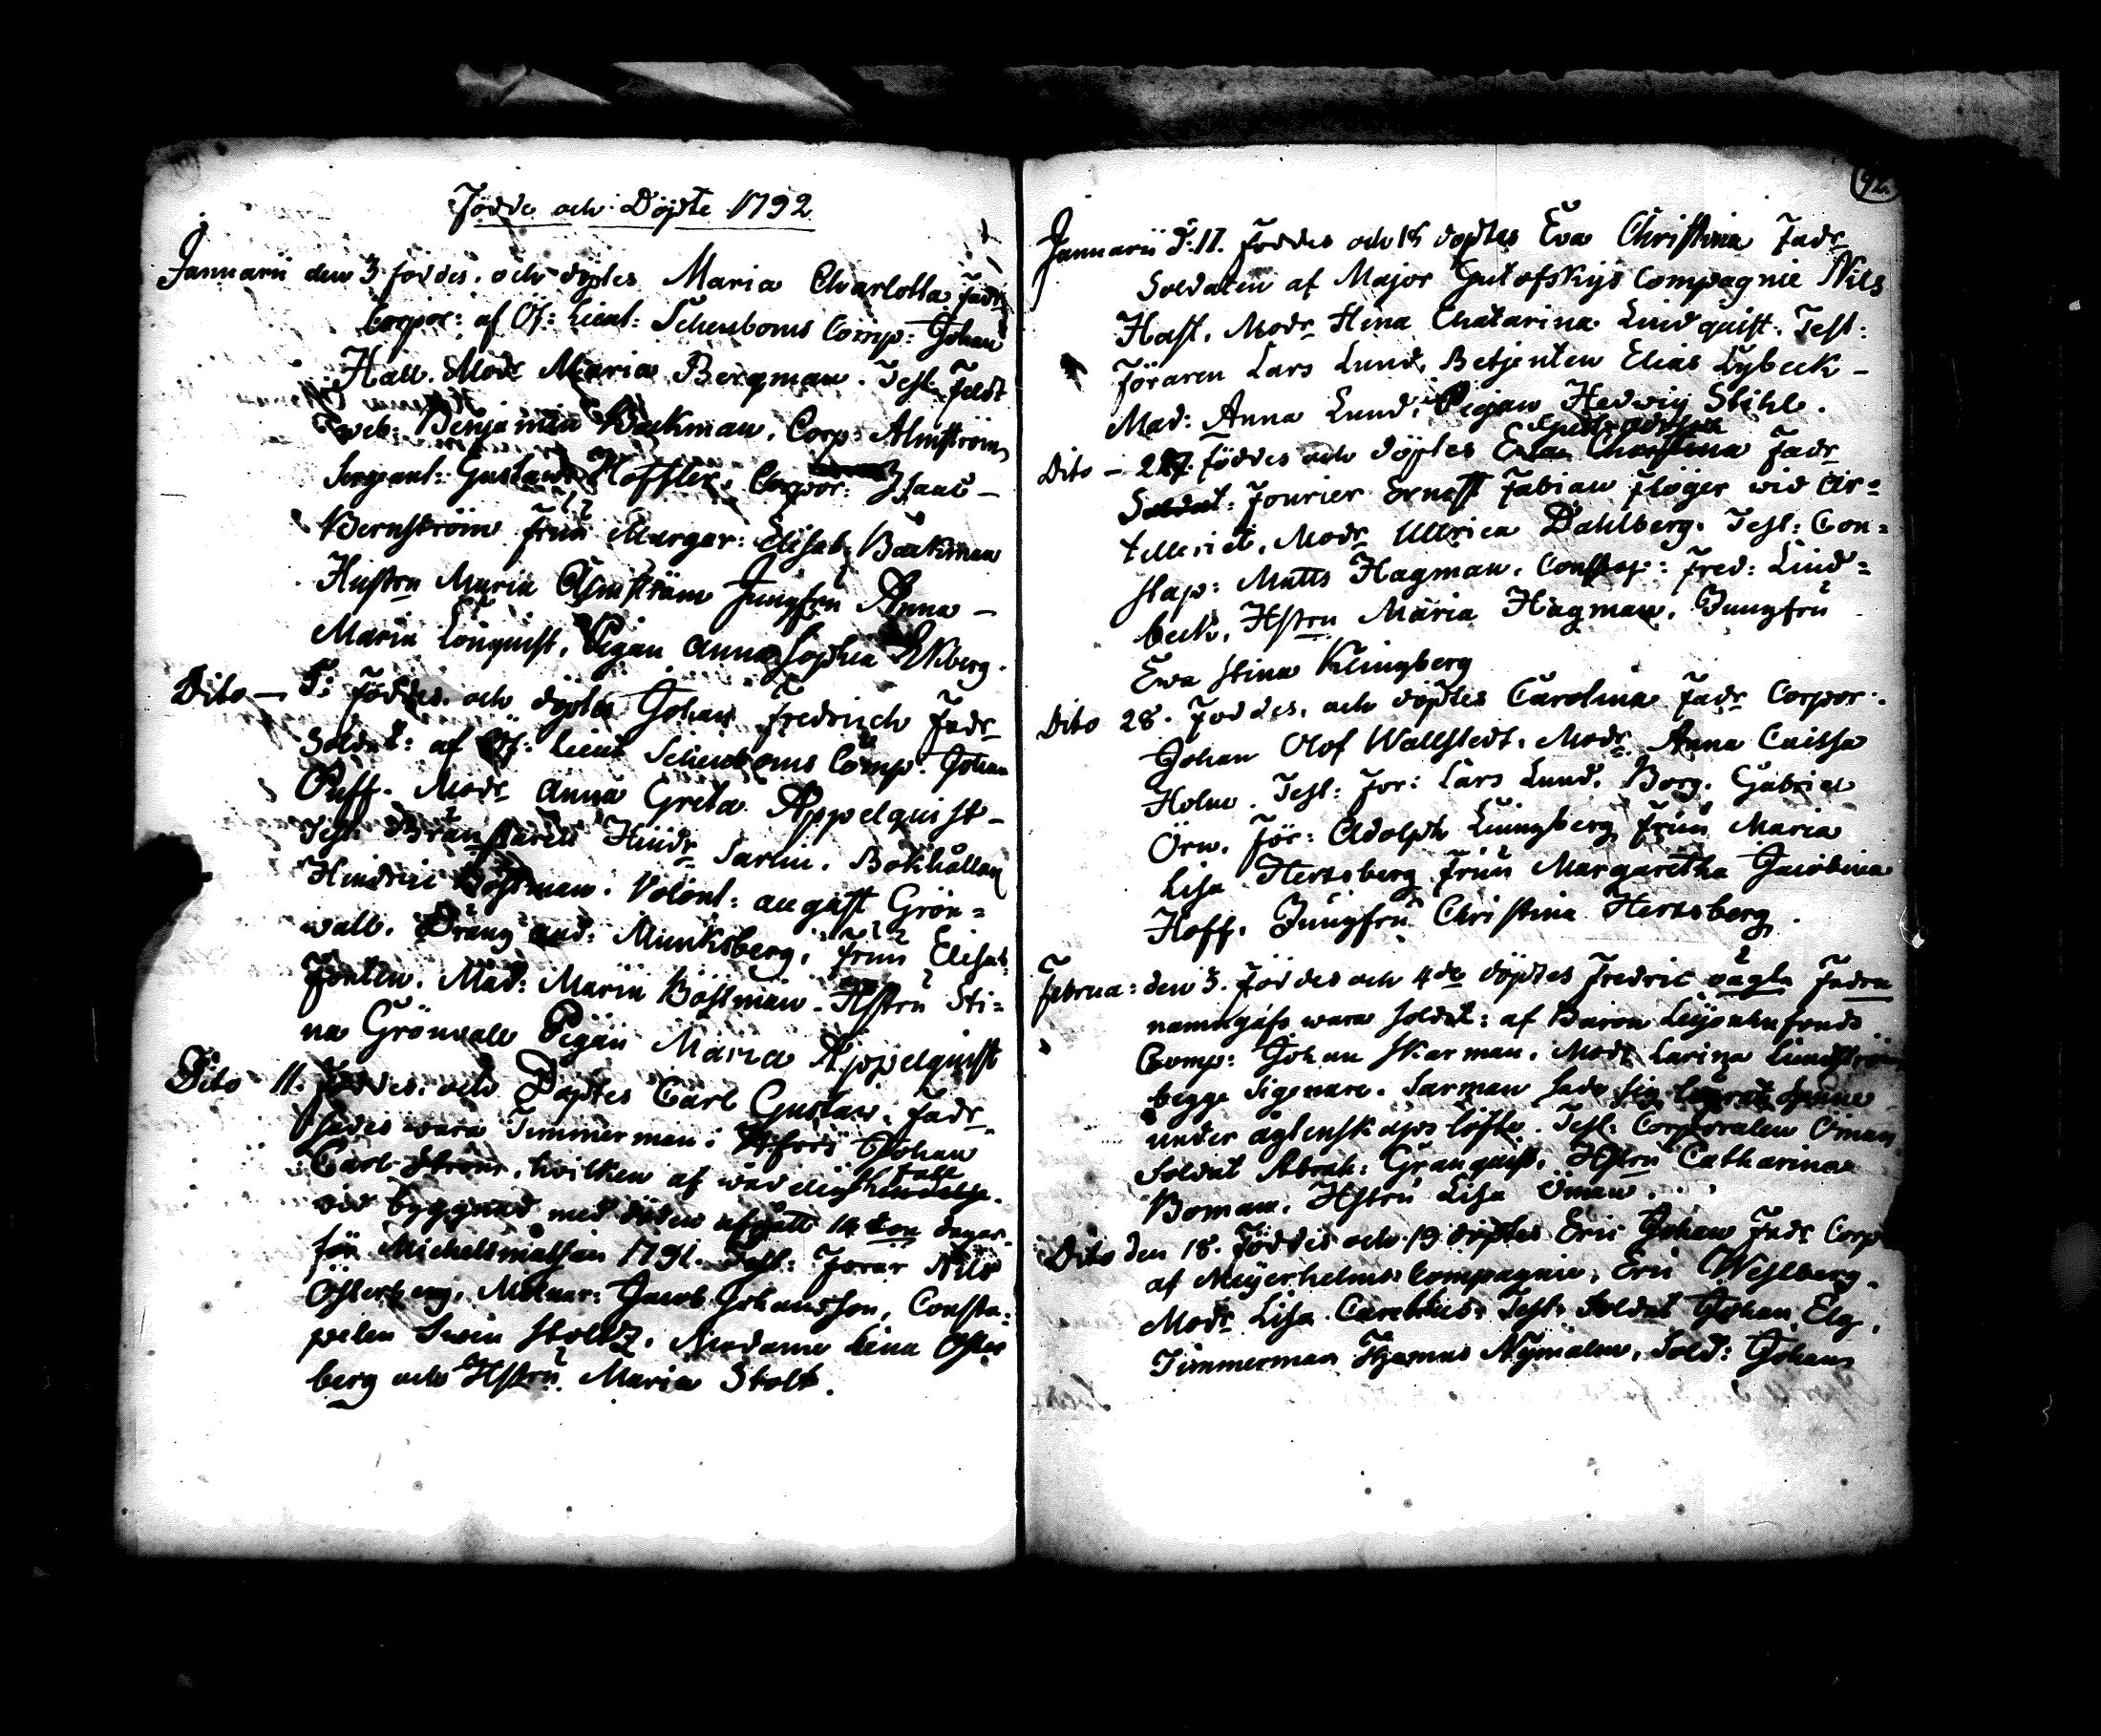 Födde och Döpte 1792
Januarii den 3 föddes. och döptes Maria Charlotta Fadr
Corpor: af Öf: Lieut: Scheuboms Comp: Johan
Hall. Modr Maria Bergman. Test: Feldt
web: Benjamin Backman. Corp: Almström
Sergeant: Gustav Hoffler. Corpor: Isaac –
Bernström Fru Margar: Elisab: Backman
Hustru Maria Almström Jungfru Anna –
Maria Lönquist, Pigan Anna Sophia Ekberg.
Dito – 5: föddes. och döptes Johan Fredrich Fadr
Soldat: af Öf: Lieut Scheuboms Comp: Johan
Puff. Modr Anna Greta Appelquist –
Test: Hindr Sarlin. Bokhållarn
Hindric Boström. Volont: august Grön=
wall. Dräng and: Munksberg, Fru Elisab:
Forten. Mad: Maria Boström. Hstru Sti=
na Grönvall Pigan Maria Appelquist
Dito 11. föddes. och Döptes Carl Gustav. Fadr
sades wara Timmerman: Johan
Carl Ström. hvilken af wådelig händelse
vid byggnad med döden afgått 14 dagar
för Michelsmässan 1791. Test: Förar Nils
Österberg. Jacob Johansson, Consta-
pelen Swen Stoltz. Madame Lena Öster
berg och Hstru Maria Stolt.
92.
Januarii d. 17. föddes och 18 döptes Eva Christina Fadr
Soldaten af Major Gutofskys Compagnie Nils
Hast. Modr Hena Chatarina Lindquist. Test:
Föraren Lars Lund. Betjenten Elias Lybeck –
Mad: Anna Lund. Pigan Hedwig Stihle.
Dito – 27 föddes och döptes Christina Fadr
Fourier Ernst Fabian Flöger wid Ar=
telleriet. Modr Ullrica Dahlberg. Test: Con=
stap: Matts Hagman. Constap: Fred: Lind=
beck. Hstru Maria Hagman. Jungfru
Ewa Stina Klingberg
Dito 28. föddes. och döptes Carolina Fadr Corpor.
Johan Olof Wallstedt. Modr Anna Caissa
Holm. Test: För: Lars Lund. Borg. Gabriel
Örn. För: Adolph Liungberg Fru Maria
Lisa Hertsberg Fru Margaretha Jacobina
Hoff. Jungfru Christina Hertsberg.
Februa: den 3. föddes och 4de döptes Fredric oägta Fadren
namngafs wara soldat: af Baron
Comp: Johan Skarman. Modr Carina Lundström
begge Sigenare. Sarman hade
under ägtenskaps löfte. Test: Corporalen Öman
Soldat Abrah: Granquist. Hstru Catharina
Boman. Hstru Lisa Öman.
Dito den 18. föddes och 19 döptes Eric Johan Fadr Corp
af Meijerhelms Compagnie, Eric Wesslberg.
Modr Lisa Test: Soldat Johan Elg.
Timmerman Nyman, Sold: Johan